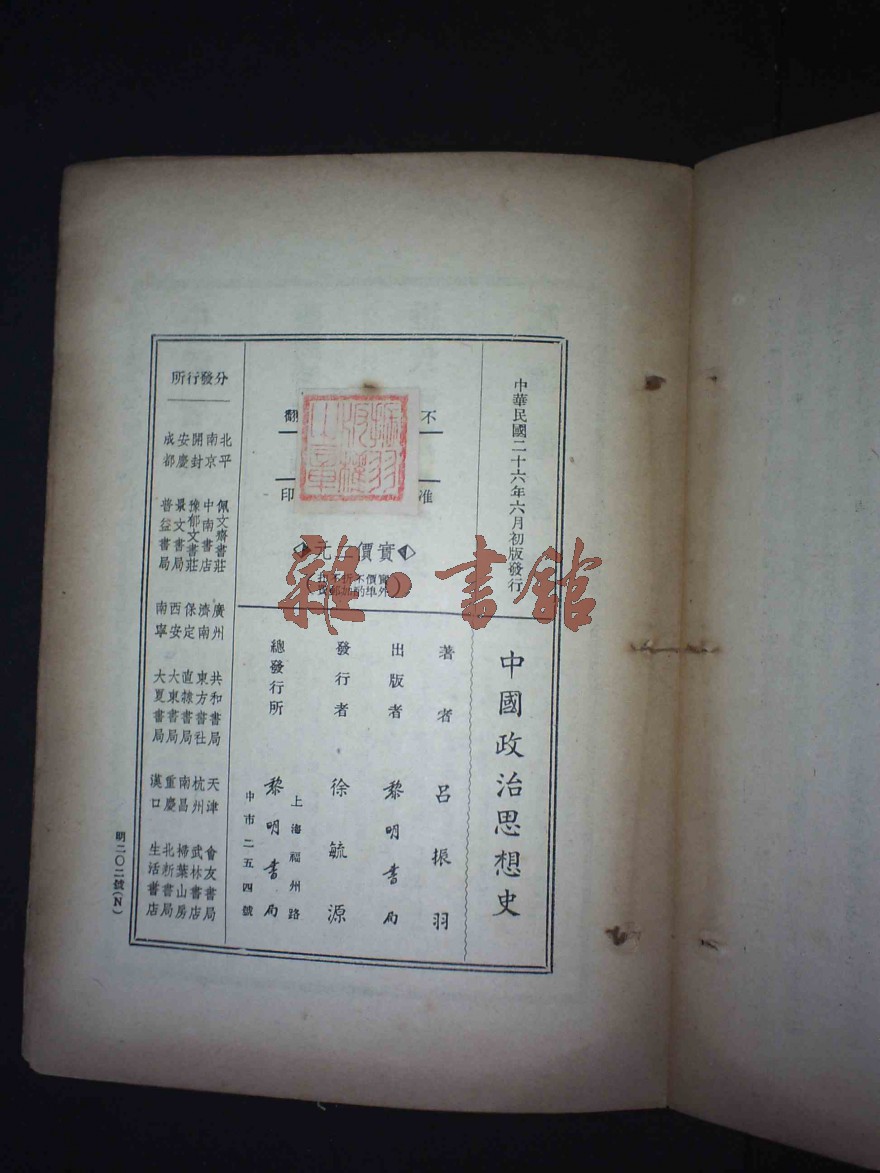 中華民國二十六年六月初版發行
中國政治思想史
不
翻
准
印
實價二元
著者 呂振羽
出版者 黎明書局
發行者 徐毓源
總發行所 黎明書局
上海福州路
中市二五四號
分發行所
北平 佩文齋書莊
南京 中南書店
開封 豫郁文書莊
安慶 景文書局
成都 普益書局
廣州 共和書局
濟南 東方書社
保定 直隸書局
西安 大東書局
南寧 大夏書局
天津 會友書局
杭州 武林書店
南昌 掃葉山房
重慶 北新書局
漢口 生活書店
明二〇二號(N)
雜·書館